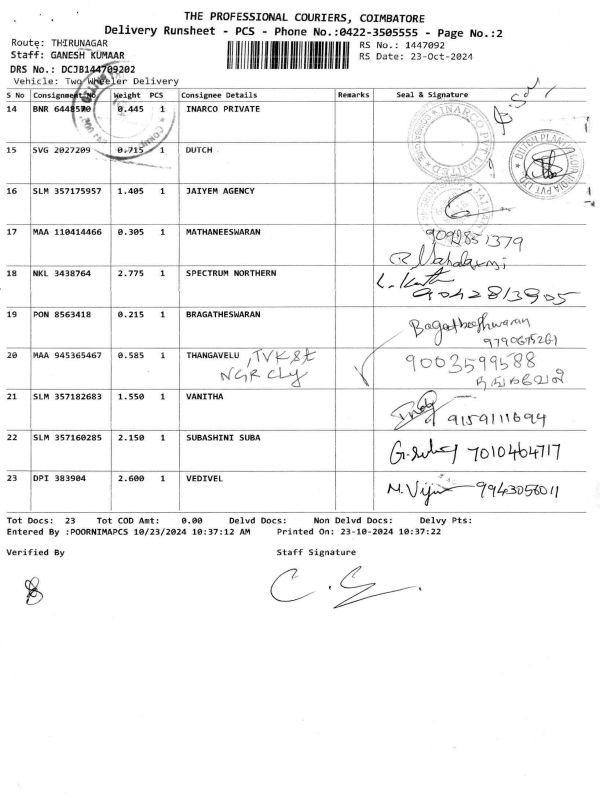 THE PROFESSIONAL COURIERS, COIMBATORE
Delivery Runsheet - PCS - Phone No.:0422-3505555 - Page No.:2
Route: THIRUNAGAR
RS No.: 1447092
Staff: GANESH KUMAAR
RS Date: 23-Oct-2024
DRS No.: DCJB144709202
Vehicle: Two Wheeler Delivery
S No Consignment No Weight PCS Consignee Details Remarks Seal & Signature
14 BNR 6448570 0.445 1 INARCO PRIVATE
INARCO PVT LIMITED
15 SVG 2027209 0.715 1 DUTCH
16 SLM 357175957 1.405 1 JAIYEM AGENCY
17 MAA 110414466 0.305 1 MATHANEESWARAN 9092851379
18 NKL 3438764 2.775 1 SPECTRUM NORTHERN
9042813905
19 PON 8563418 0.215 1 BRAGATHESWARAN
20 MAA 945365467 0.585 1 THANGAVELU , TVK St 9003599588
21 SLM 357182683 1.550 1 VANITHA 9159111694
22 SLM 357160285 2.150 1 SUBASHINI SUBA 7010464717
23 DPI 383904 2.600 1 VEDIVEL 9943056011
Tot Docs: 23 Tot COD Amt: 0.00 Delvd Docs: Non Delvd Docs: Delvy Pts:
Entered By :POORNIMAPCS 10/23/2024 10:37:12 AM Printed On: 23-10-2024 10:37:22
Verified By Staff Signature